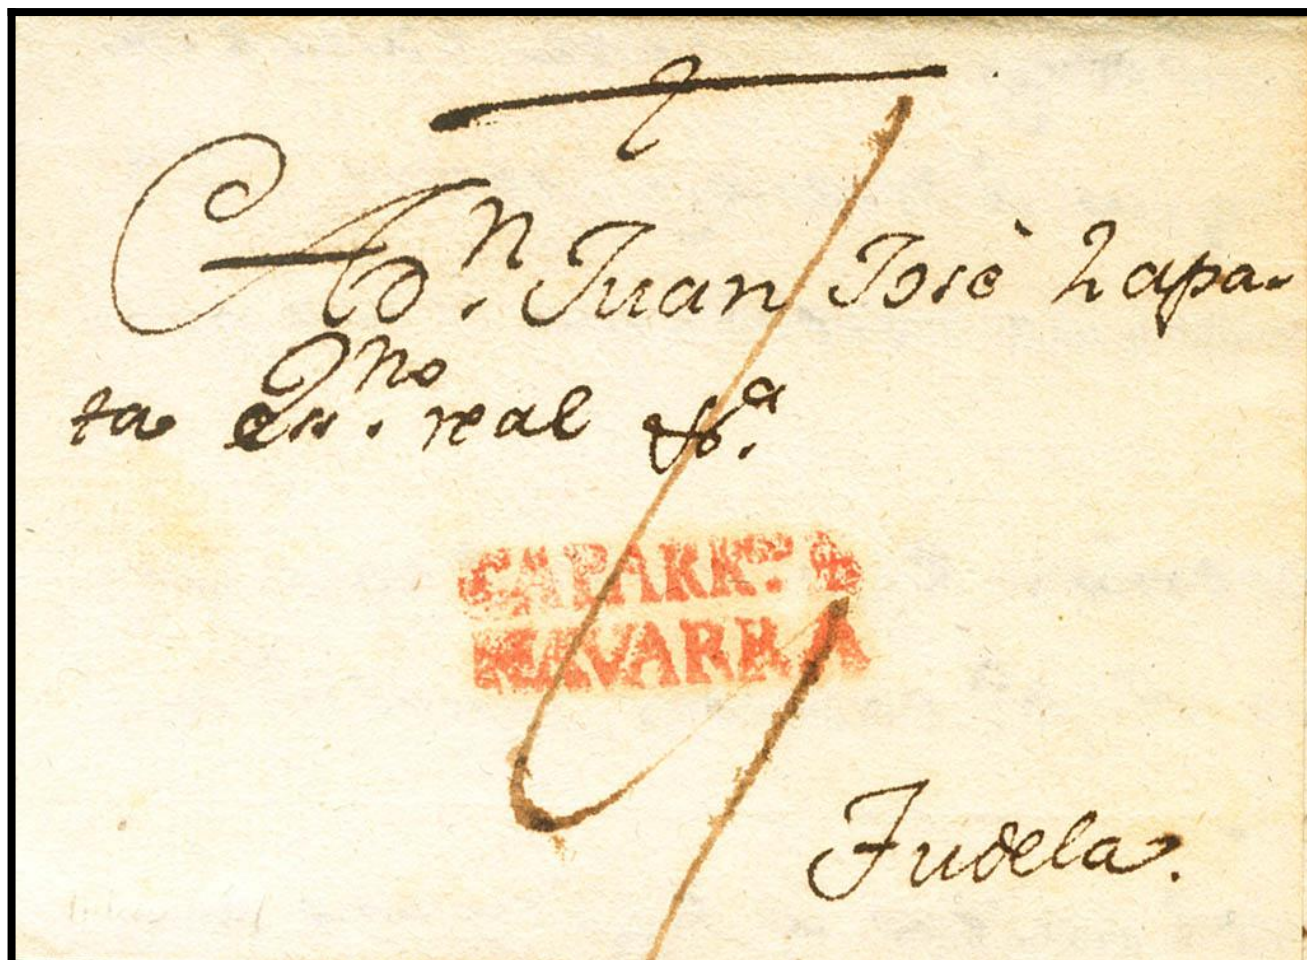 A Dn. Juan Josè Zapa-
ta essno. real &a.
CAPARRO. D
NAVARRA
Tudela.